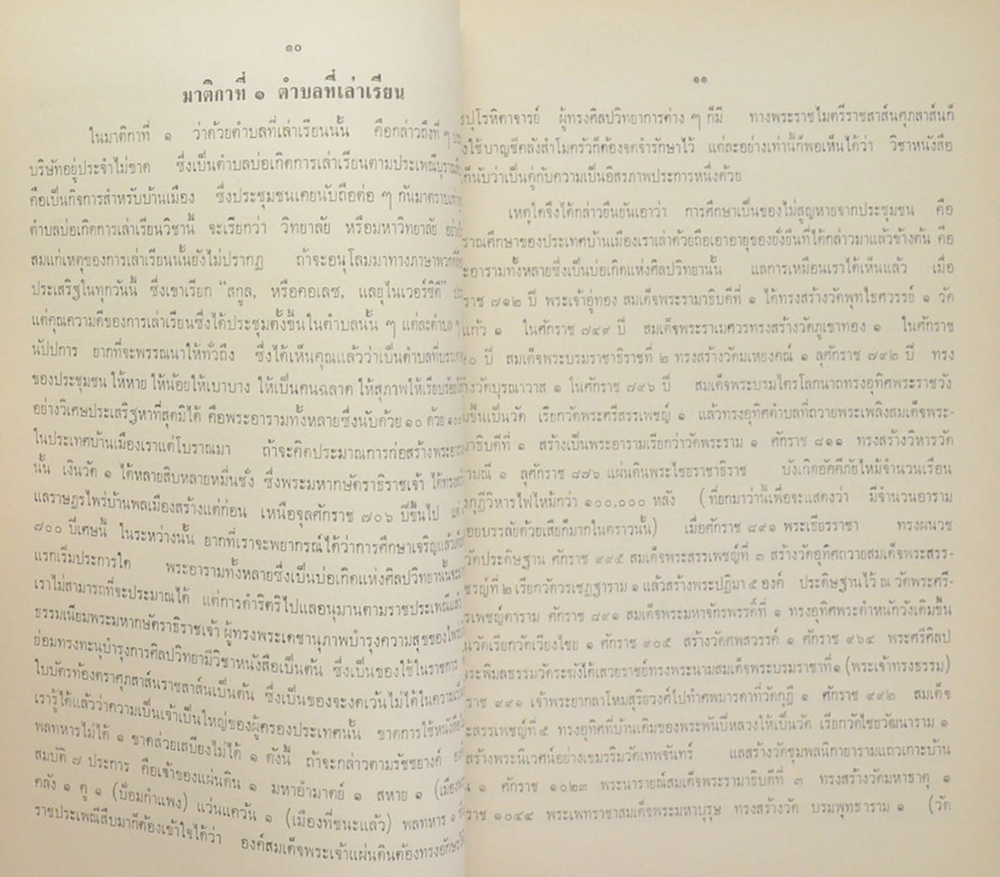 ๑๐
มาติกาที่ ๑ ตำบลที่เล่าเรียน
ในมาติกาที่ ๑ ว่าด้วยตำบลที่เล่าเรียนนั้น คือกล่าวถึงที่ ๆ
บริษัทอยู่ประจำไม่ขาด ซึ่งเป็นตำบลบ่อเกิดการเล่าเรียนตามประเพณีบุราณ
คือเป็นกิจการสำหรับบ้านเมือง ซึ่งประชุมชนเคยนับถือต่อ ๆ กันมาตราบเท่า
ตำบลบ่อเกิดการเล่าเรียนวิชานี้ จะเรียกว่า วิทยาลัย หรือมหาวิทยาลัย
สมแก่เหตุของการเล่าเรียนนั้นยังไม่ปรากฏ ถ้าจะอนุโลมมาทางภาษา
ประเสริฐในทุกวันนี้ ซึ่งเขาเรียก “สกูล, หรือคอเลซ, แลยูไนเวอร์ซิตี”
แต่คุณความดีของการเล่าเรียนซึ่งได้ประชุมตั้งขึ้นในตำบลนั้น ๆ แต่ละตำบล ๆ
นัปปการ ยากที่จะพรรณนาให้ทั่วถึง ซึ่งได้เห็นคุณแล้วว่าเป็นตำบลที่
ของประชุมชน ให้หาย ให้น้อยให้เบาบาง ให้เป็นคนฉลาด ให้สุภาพให้เรียบร้อย
อย่างวิเศษประเสริฐหาที่สุดมิได้ คือพระอารามทั้งหลายซึ่งนับด้วย ๑๐ ด้วย ๑๐๐
ในประเทศบ้านเมืองเราแต่โบราณมา ถ้าจะคิดประมาณการก่อสร้างพระอาราม
นั้น เงินวัด ๑ ได้หลายสิบหลายหมื่นชั่ง ซึ่งพระมหากษัตราธิราชเจ้า ได้ทรง
แลราษฎรไพร่บ้านพลเมืองสร้างแต่ก่อน เหนือจุลศักราช ๗๐๖ ปีขึ้นไป
๗๐๐ ปีเศษนี้ ในระหว่างนั้น ยากที่เราจะพยากรณ์ได้ว่าการศึกษาเจริญแล้ว
แรกเริ่มประการใด พระอารามทั้งหลายซึ่งเป็นบ่อเกิดแห่งศิลปวิทยานั้น
เราไม่สามารถที่จะประมาณได้ แต่การดำริตริไปแลอนุมานตามราชประเพณี
ธรรมเนียมพระมหากษัตราธิราชเจ้า ผู้ทรงพระเดชานุภาพบำรุงความสุขของไพร่
ย่อมทรงทะนุบำรุงการศิลปวิทยามีวิชาหนังสือเป็นต้น ซึ่งเป็นของใช้ในราชการ
ใบบัตรท้องตราศุภสาส์นราชสาส์นเป็นต้น ซึ่งเป็นของจะงดเว้นไม่ได้ในความ
เรารู้ได้แล้วว่าความเป็นเจ้าเป็นใหญ่ของผู้ครองประเทศนั้น ขาดการใช้หนังสือ
พลทหารไม่ได้ ๑ ขาดส่วยเสบียงไม่ได้ ๑ ดังนี้ ถ้าจะกล่าวตามรัชชยางค์
สมบัติ ๗ ประการ คือเจ้าของแผ่นดิน ๑ มหาอำมาตย์ ๑ สหาย ๑
คลัง ๑ คู ๑ (ป้อมกำแพง) แว่นแคว้น ๑ (เมืองที่ชนะแล้ว) พลทหาร ๑
ราชประเพณีสืบมาก็ต้องเข้าใจได้ว่า องค์สมเด็จพระเจ้าแผ่นดินต้องทรง
๑๑
ปุโรหิตาจารย์ ผู้ทรงศิลปวิทยาการต่าง ๆ ก็มี ทางพระราชไมตรีราชสาส์นศุภสาส์นก็
ใช้บาญชีคลังสำโมครัวก็ต้องจดจำรักษาไว้ แต่ละอย่างเท่านี้ก็พอเห็นได้ว่า วิชาหนังสือ
นับว่าเป็นคู่กับความเป็นอิสรภาพประการหนึ่งด้วย
เหตุใดจึงได้กล่าวยืนยันเอาว่า การศึกษาเป็นของไม่สูญหายจากประชุมชน คือ
ราณศึกษาของประเทศบ้านเมืองเราเล่าด้วยถือเอาอายุของยั่งยืนที่ได้กล่าวมาแล้วข้างต้น คือ
อารามทั้งหลายซึ่งเป็นบ่อเกิดแห่งศิลปวิทยานั้น แลการเหมือนเราได้เห็นแล้ว เมื่อ
ราช ๗๑๒ ปี พระเจ้าอู่ทอง สมเด็จพระรามาธิบดีที่ ๑ ได้ทรงสร้างวัดพุทไธศวรรย์ ๑ วัด
แก้ว ๑ ในศักราช ๗๔๙ ปี สมเด็จพระราเมศวรทรงสร้างวัดภูเขาทอง ๑ ในศักราช
๐ ปี สมเด็จพระบรมราชาธิราชที่ ๒ ทรงสร้างวัดมเหยงคณ์ ๑ ลุศักราช ๗๙๒ ปี ทรง
วัดบุรณาวาส ๑ ในศักราช ๗๙๖ ปี สมเด็จพระบรมไตรโลกนาถทรงอุทิศพระราชวัง
ขึ้นเป็นวัด เรียกวัดพระศรีสรรเพชญ์ ๑ แล้วทรงอุทิศตำบลที่ถวายพระเพลิงสมเด็จพระ-
มาธิบดีที่ ๑ สร้างเป็นพระอารามเรียกว่าวัดพระราม ๑ ศักราช ๘๑๑ ทรงสร้างวิหารวัด
ามณี ๑ ลุศักราช ๘๘๖ แผ่นดินพระไชยราชาธิราช บังเกิดอัคคีภัยไหม้จำนวนเรือน
กุฎีวิหารไฟไหม้กว่า ๑๐๐,๐๐๐ หลัง (ที่ยกมาว่านี้เพื่อจะแสดงว่า มีจำนวนอาราม
อยบรรลัยด้วยเสียก็มากในคราวนั้น) เมื่อศักราช ๘๙๑ พระเธียรราชา ทรงผนวช
วัดประดิษฐาน ศักราช ๙๙๕ สมเด็จพระสรรเพชญ์ที่ ๓ สร้างวัดอุทิศถวายสมเด็จพระสรร-
ชญ์ที่ ๒ เรียกวัดวรเชฏฐาราม ๑ แล้วสร้างพระปฏิมา ๕ องค์ ประดิษฐานไว้ ณ วัดพระศรี-
เพชญ์ดาราม ศักราช ๘๙๑ สมเด็จพระมหาจักรพรรดิ์ที่ ๑ ทรงอุทิศพระตำหนักวังเดิมขึ้น
วัดเรียกวัดเวียงไชย ๑ ศักราช ๙๐๕ สร้างวัดศพสวรรค์ ๑ ศักราช ๙๖๔ พระศรีศิลป
ระพิมลธรรมวัดระฆังได้เสวยราชย์ทรงพระนามสมเด็จพระบรมราชาที่๑ (พระเจ้าทรงธรรม)
ราช ๙๙๑ เจ้าพระยากลาโหมสุริยวงค์ไปทำศพมารดาที่วัดกุฎี ๑ ศักราช ๙๙๒ สมเด็จ
ะสรรเพชญ์ที่ ๕ ทรงอุทิศที่บ้านเดิมของพระพันปีหลวงให้เป็นวัด เรียกวัดไชยวัฒนาราม ๑
สร้างพระนิเวศน์อย่างเขมรริมวัดเทพจันทร์ แลสร้างวัดชุมพลนิกายารามแถวเกาะบ้าน
๑ ศักราช ๑๐๒๓ พระนารายณ์สมเด็จพระรามาธิบดีที่ ๓ ทรงสร้างวัดมหาธาตุ ๑
ราช ๑๐๔๔ พระเพทราชาสมเด็จพระมหาบุรุษ ทรงสร้างวัด บรมพุทธาราม ๑ (วัด